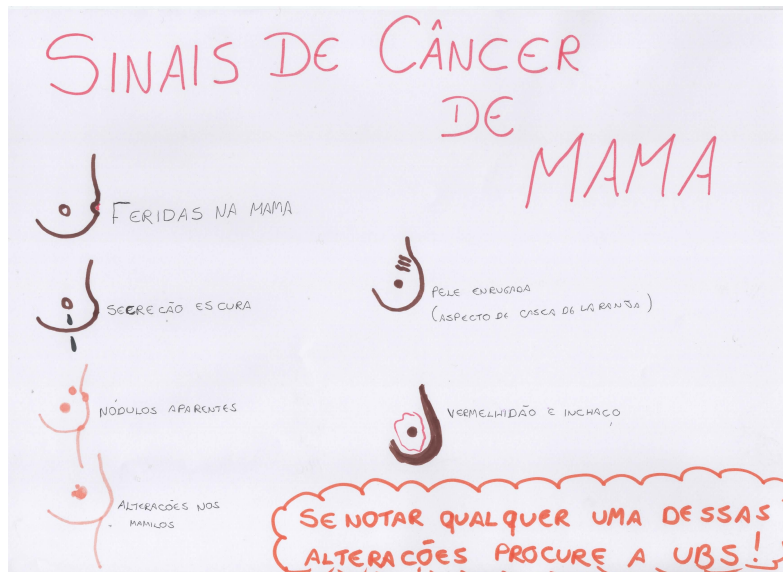 SINAIS DE CÂNCER
DE
MAMA
FERIDAS NA MAMA
SECREÇÃO ESCURA
NÓDULOS APARENTES
ALTERAÇÕES NOS
MAMILOS
PELE ENRUGADA
(ASPECTO DE CASCA DE LARANJA)
VERMELHIDÃO E INCHAÇO
SE NOTAR QUALQUER UMA DESSAS
ALTERAÇÕES PROCURE A UBS!